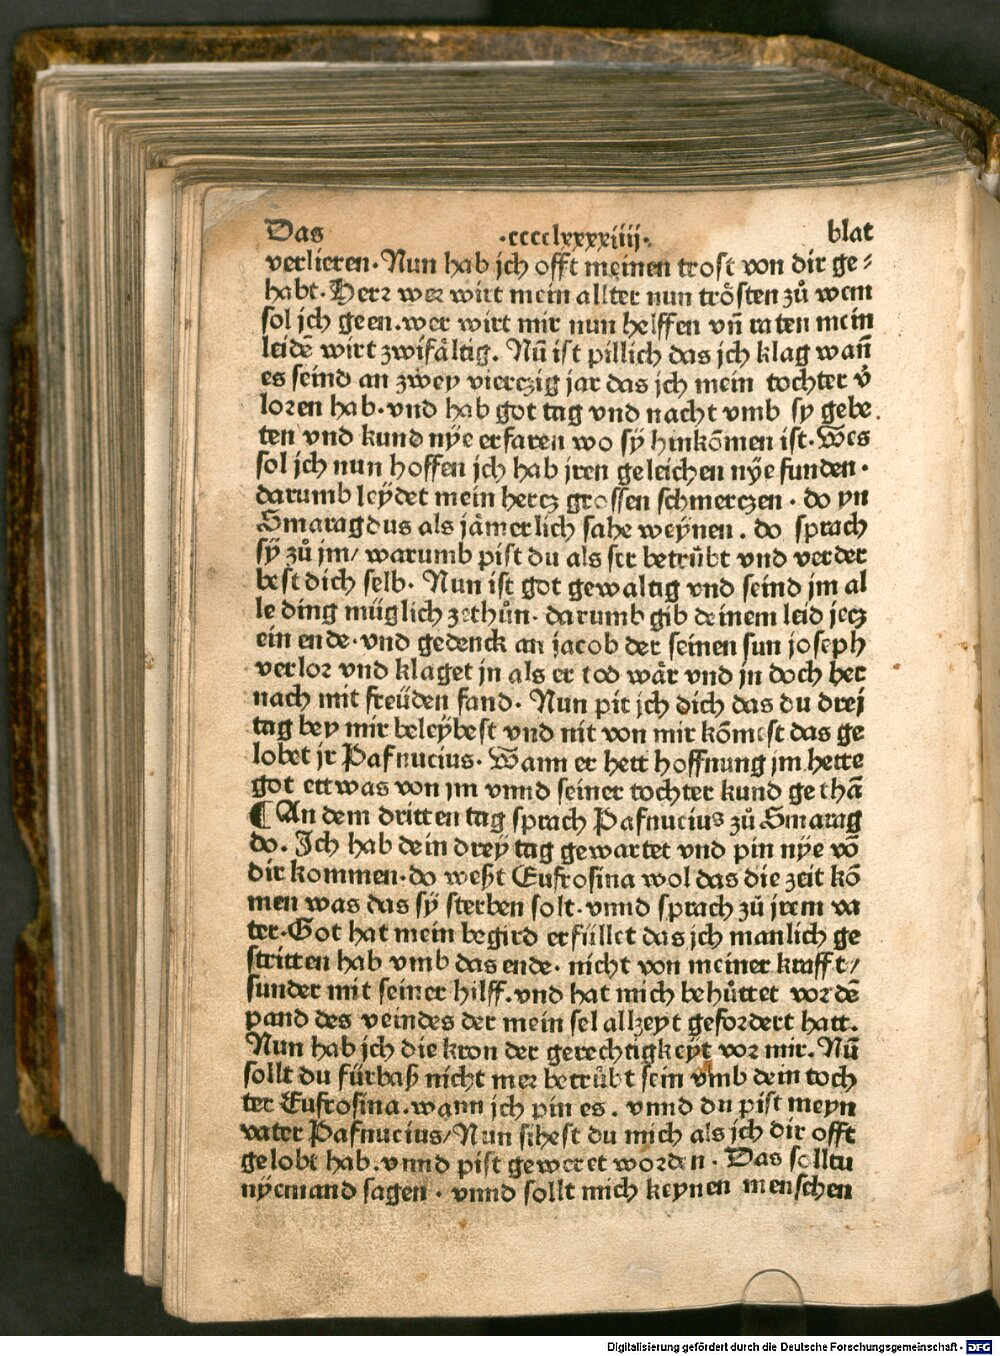 Das ·cccclxxxxiiij· blat
verlieren. Nun hab jch offt meinen trost von dir ge⸗
habt. Herꝛ weꝛ wirt mein allter nun trösten zů wem
sol jch geen. wer wirt mir nun helffen vñ raten mein
leidē wirt zwifältig. Nū ist pillich das jch klag wañ
es seind an zwey vierczig jar das jch mein tochter v̄
loꝛen hab. vnd hab got tag vnd nacht vmb sy gebe
ten vnd kund nye erfaren wo sÿ hinkōmen ist. Wes
sol jch nun hoffen jch hab jren geleichen nÿe funden.
darumb leÿdet mein hercz grossen schmerczen. do yn
Smaragdus als jämerlich sahe weÿnen. do sprach
sÿ zů jm/ warumb pist du als ser betrůbt vnd verder
best dich selb. Nun ist got gewaltig vnd seind jm al
le ding müglich zethůn. darumb gib deinem leid jecz
ein ende. vnd gedenck an jacob der seinen sun joseph
verloꝛ vnd klaget jn als er tod wär vnd jn doch her
nach mit freüden fand. Nun pit jch dich das du drej
tag bey mir beleÿbest vnd nit von mir kōmest das ge
lobet jr Pafnucius. Wann er hett hoffnung jm hette
got ettwas von jm vnnd seiner tochter kund gethā
¶ An dem dritten tag sprach Pafnucius zů Smarag
do. Ich hab dein dreÿ tag gewartet vnd pin nÿe vō
dir kommen. do weßt Eufrosina wol das die zeit kō
men was das sÿ sterben solt. vnnd sprach zů jrem va
ter. Got hat mein begird erfüllet das jch manlich ge
stritten hab vmb das ende. nicht von meiner krafft/
sunder mit seiner hilff. vnd hat mich behůttet vor dē
pand des veindes der mein sel allzeyt gefordert hatt.
Nun hab jch die kron der gerechtigkeÿt voꝛ mir. Nū
sollt du fürbaß nicht meꝛ betrůbt sein vmb dein toch
ter Eufrosina. wann jch pin es. vnnd du pist meyn
vater Pafnucius/ Nun sihest du mich als jch dir offt
gelobt hab. vnnd pist geweret worden. Das solltu
nÿemand sagen. vnnd sollt mich keynen menschen
Digitalisierung gefördert durch die Deutsche Forschungsgemeinschaft - DFG